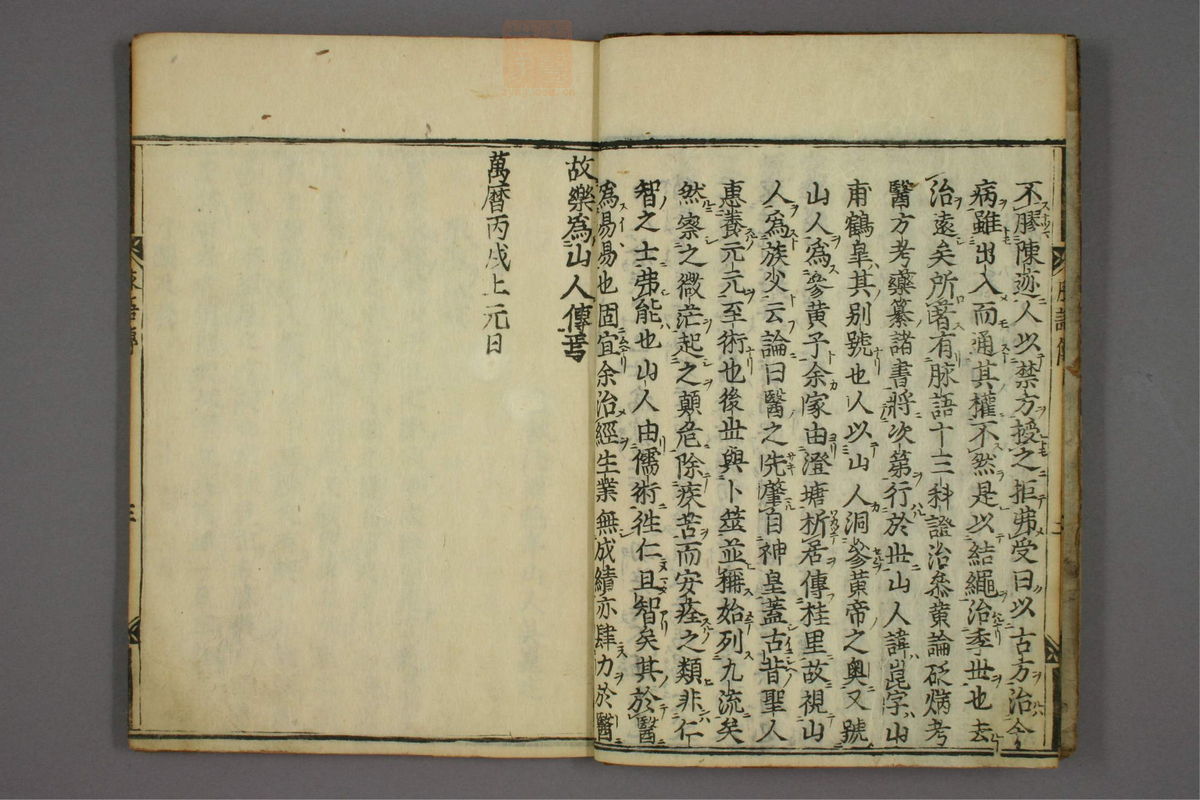 不膠陳迹人以禁方授之拒弗受曰以古方治今
病雖出入而通其權不然是以結繩治季世也去
治遠矣所著有脉語十三科證治參黄論砭焫考
醫方考藥纂諸書將次第行於世山人諱崑字山
甫鶴臯其别號也人以山人洞參黄帝之奥又號
山人為參黄子余家由澄塘析居傳桂里故視山
人為族父云論曰醫之先肇自神皇蓋古昔聖人
惠養元元至術也後世與卜筮並稱始列九流矣
然察之微茫起之顛危除疾苦而安痊之類非仁
智之士弗能也山人由儒術徃仁且智矣其於醫
為易易也固宜余治經生業無成績亦肆力於醫
故樂為山人傳焉
萬曆丙戌上元日